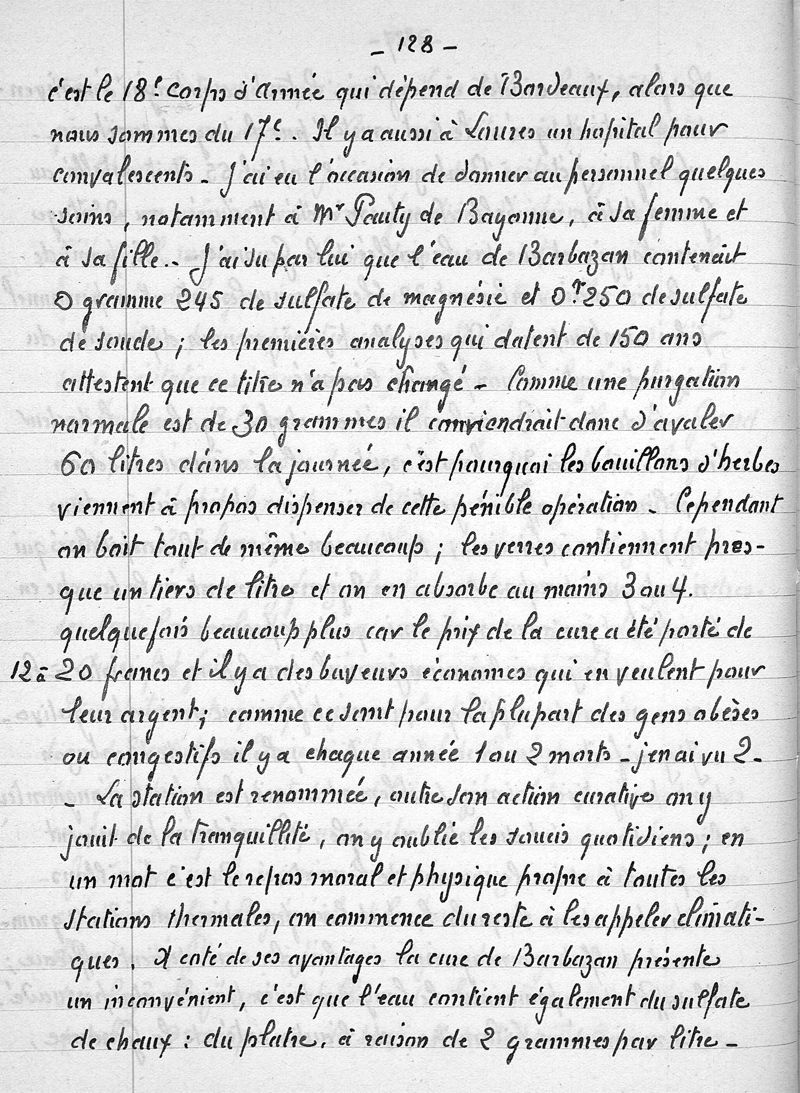 - 128 -
c'est le 18e corps d'armée qui dépend de Bordeaux, alors que
nous sommes du 17e. Il y a aussi à Loures un hopital pour
convalescents - J'ai eu l'occasion de donner au personnel quelques
soins, notamment à Mr Pauty de Bayonne, à sa femme et
à sa fille.- J'ai su par lui que l'eau de Barbazan contenait
0 gramme 245 de sulfate de magnésie et 0gr250 de sulfate
de soude ; les premières analyses qui datent de 150 ans
attestent que ce titre n'a pas changé - Comme une purgation
normale est de 30 grammes il conviendrait donc d'avaler
60 litres dans la journée, c'est pourquoi les bouillons d'herbes
viennent à propos dispenser de cette pénible opération - Cependant
on boit tout de même beaucoup ; les verres contiennent pres-
que un tiers de litre et on en absorbe au moins 3 ou 4.
quelquefois beaucoup plus car le prix de la cure a été porté de
12 à 20 francs et il y a des buveurs économes qui en veulent pour
leur argent ; comme ce sont pour la plupart des gens obèses
ou congestifs il y a chaque année 1 ou 2 morts - j'en ai vu 2 -
- La station est renommée, outre son action curative on y
jouit de la tranquillité, on y oublie les soucis quotidiens ; en
un mot c'est le repos moral et physique propre à toutes les
stations thermales, on commence du reste à les appeler climati-
ques. A coté de ses avantages la cure de Barbazan présente
un inconvénient, c'est que l'eau contient également du sulfate
de chaux : du platre, à raison de 2 grammes par litre -